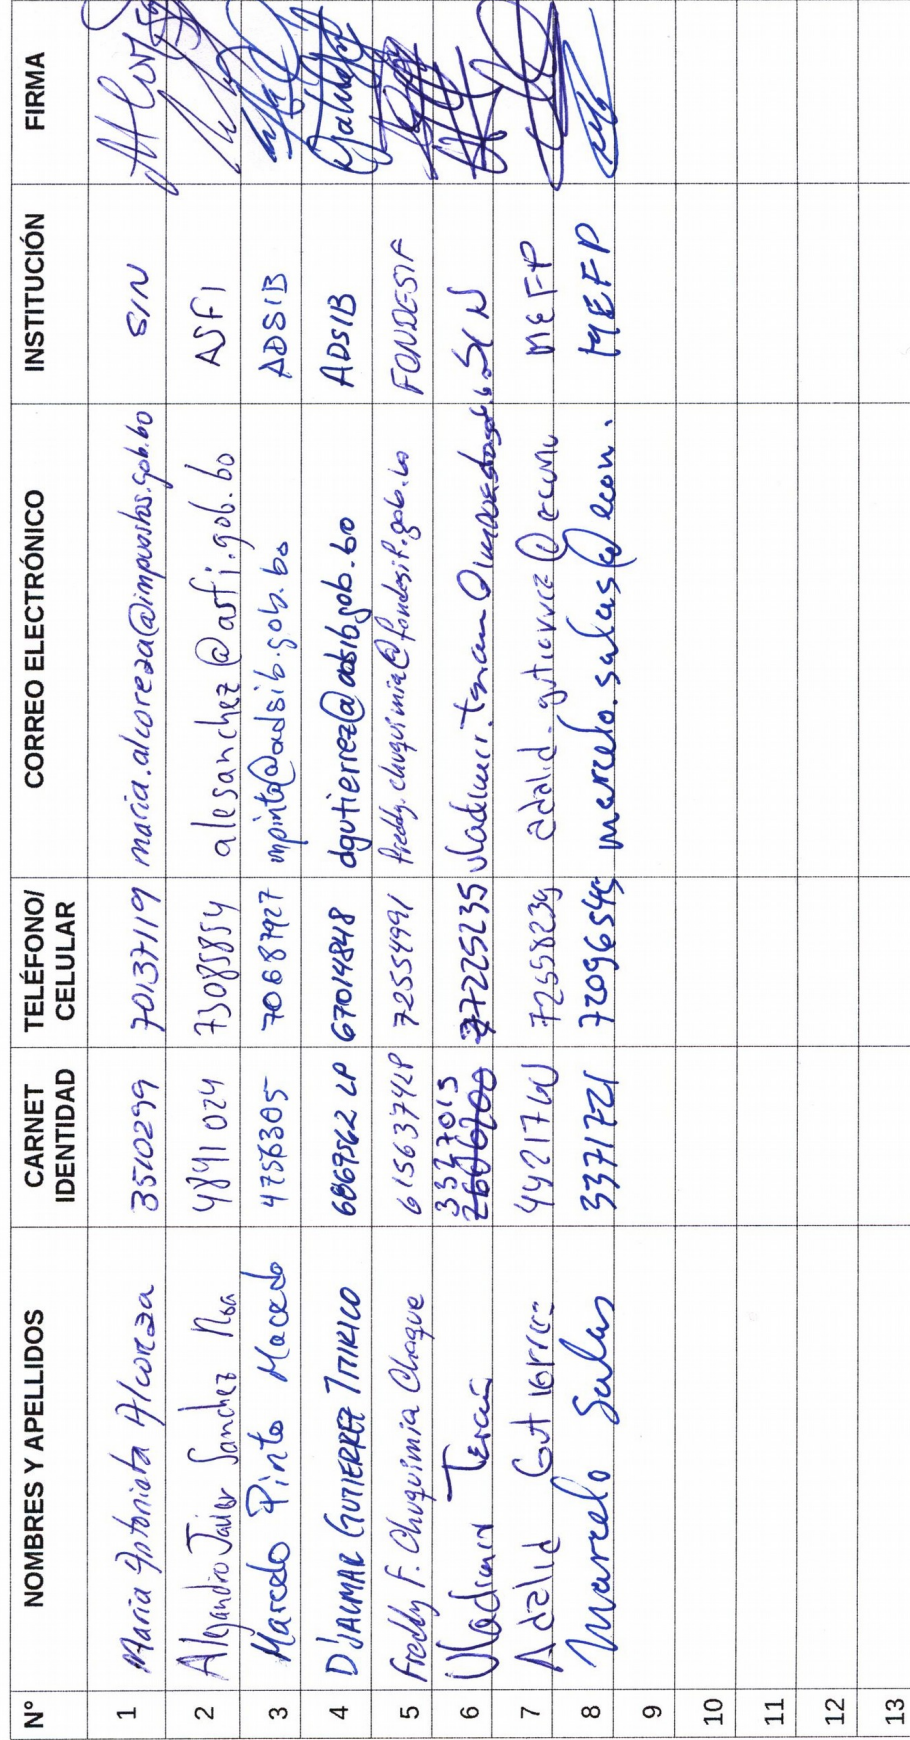 Nº NOMBRES Y APELLIDOS CARNET IDENTIDAD TELÉFONO/ CELULAR CORREO ELECTRÓNICO INSTITUCIÓN FIRMA
1 Maria Antonieta Alcoreza 3510299 70137119 maria.alcoreza@impuestos.gob.bo SIN
2 Alejandro Javier Sanchez Noa 4841024 73085854 alesanchez@asfi.gob.bo ASFI
3 Marcelo Pinto Macedo 4756305 70687927 mpinto@adsib.gob.bo ADSIB
4 D'JALMAR GUTIERREZ 6069562 LP 67014848 dgutierrez@adsib.gob.bo ADSIB
5 Freddy F. Chuquimia Choque 6156374LP 72554991 freddy.chuquimia@fondesif.gob.bo FONDESIF
6 Vladimir Terán 3327015 77225235 vladimir.teran@ SIN
7 Adalid Gutierrez 4421710 72558239 adalid.gutierrez@econo MEFP
8 Marcelo Salas 3371721 72096545 marcelo.salas@econ. MEFP
9
10
11
12
13